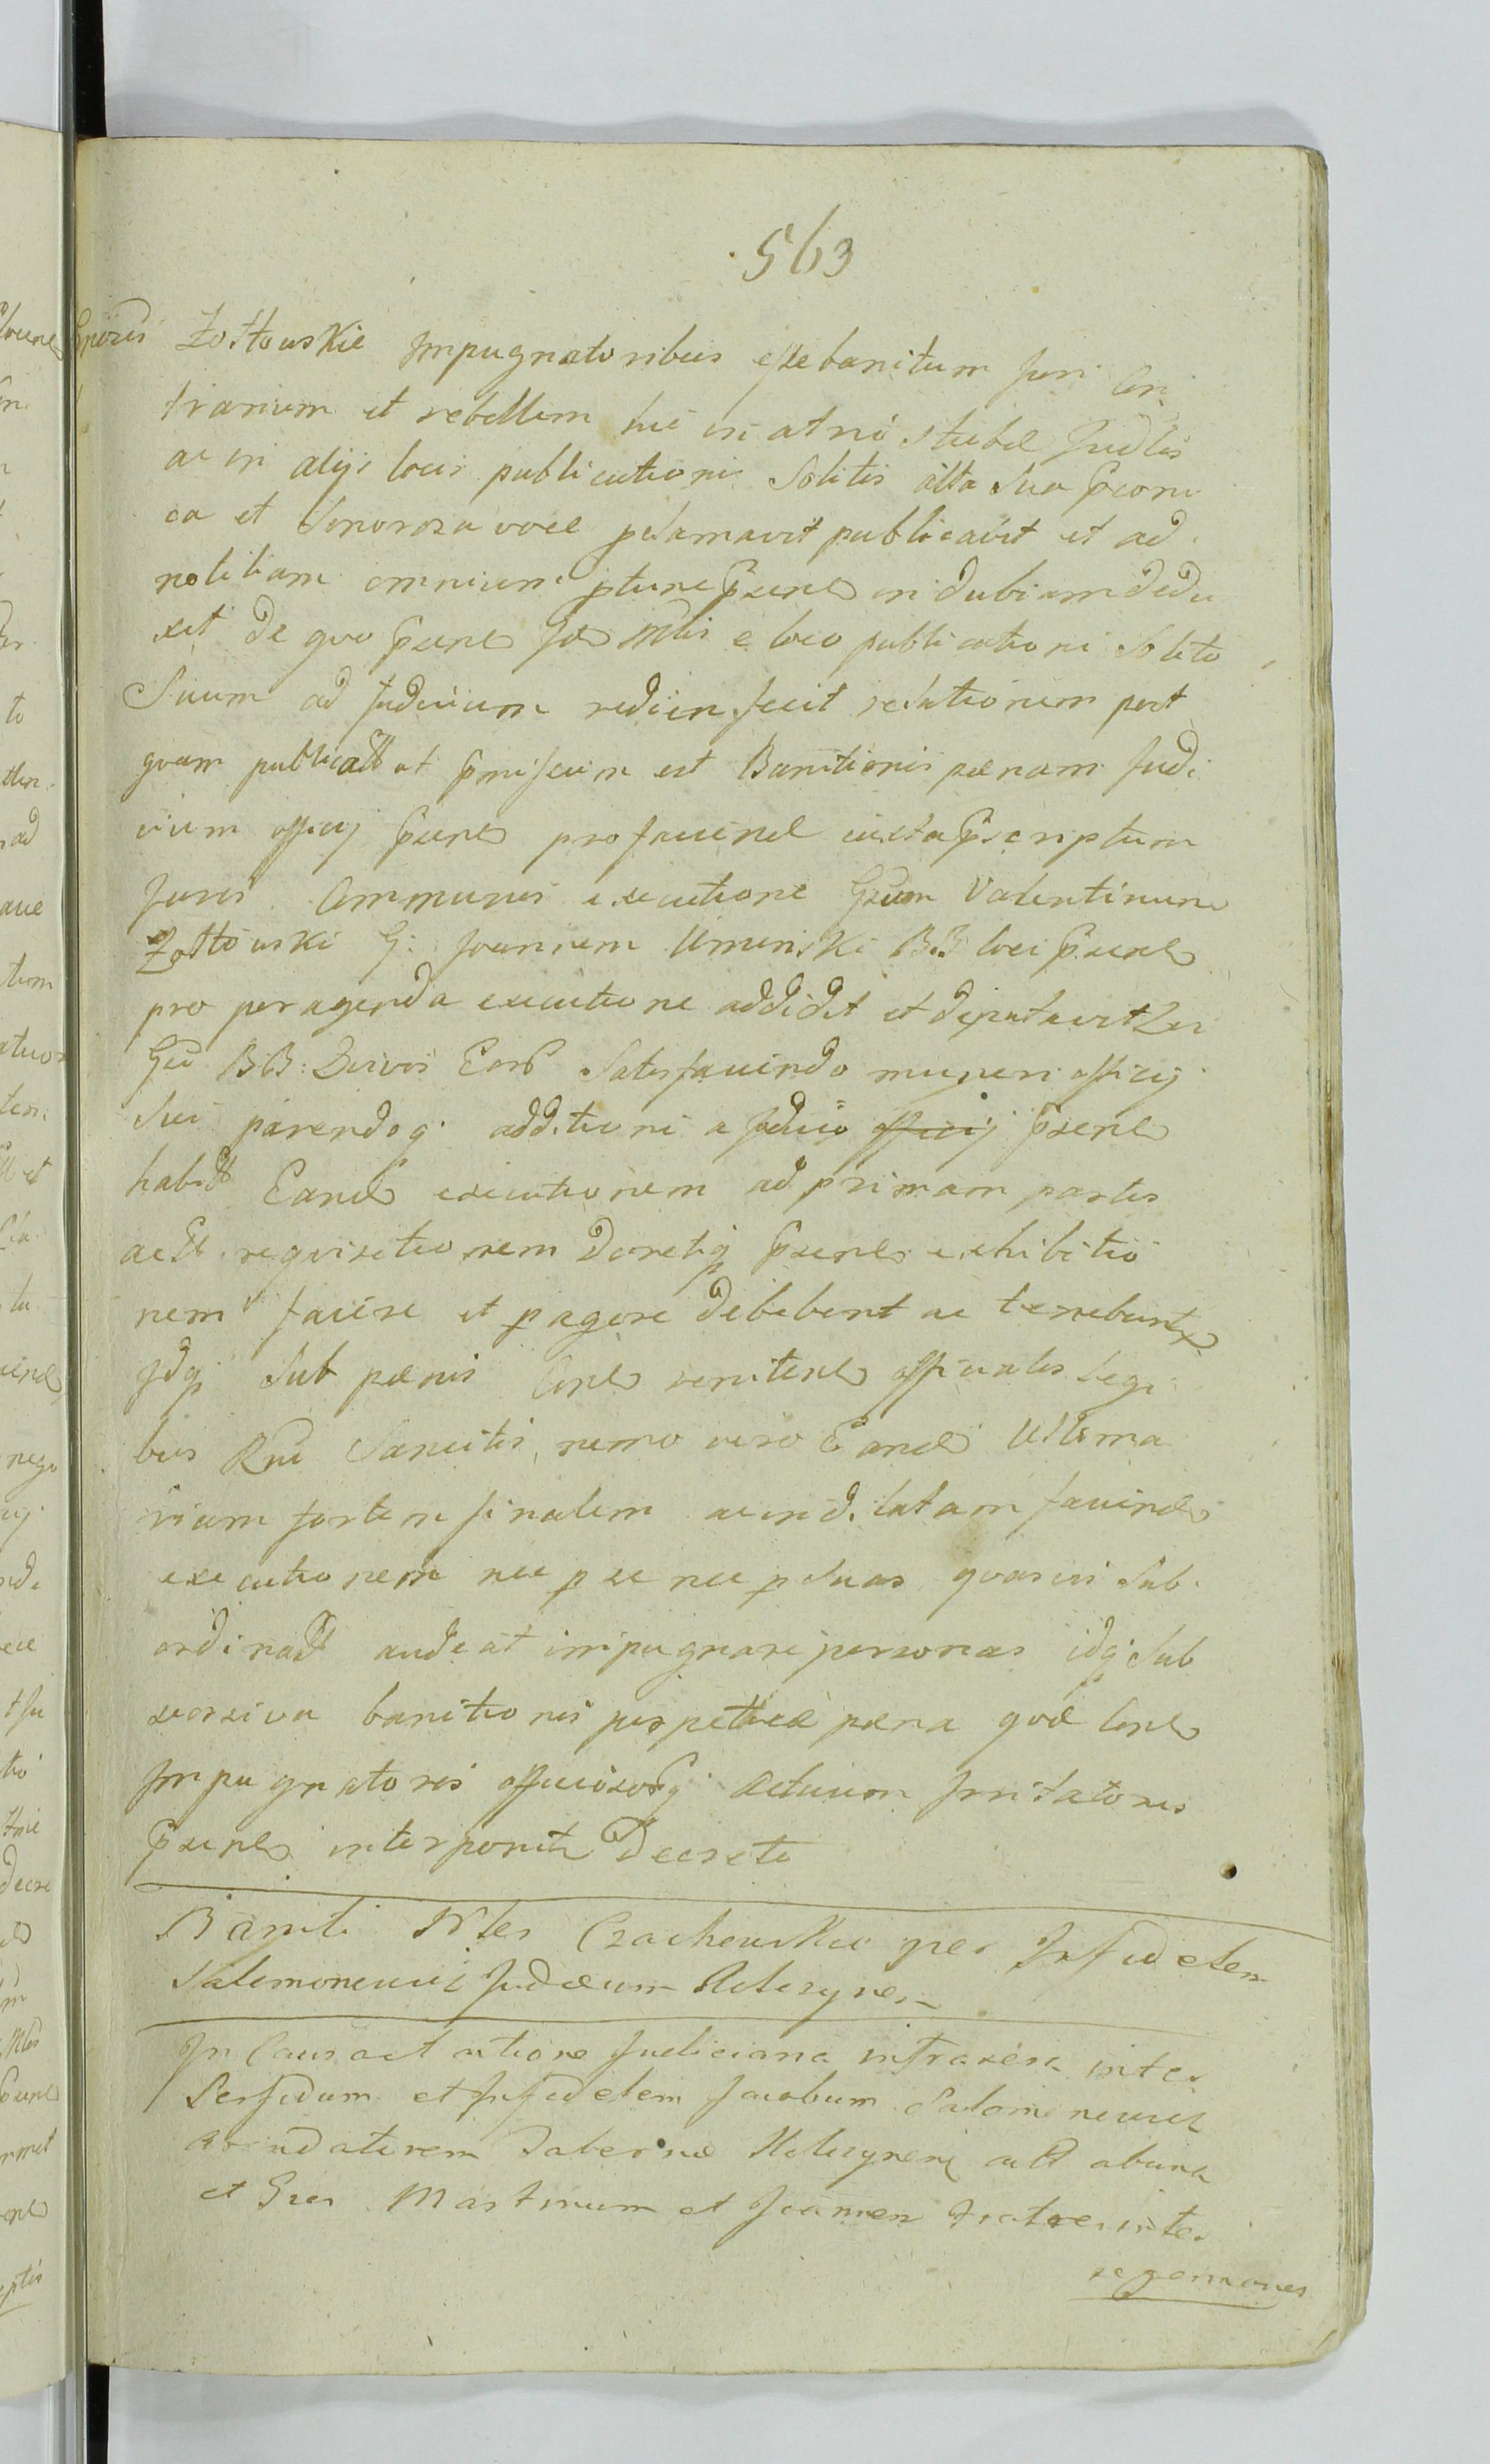 563
Gnosis Zołtowskie Impugnatoribus esse banitum Juri Con
trarium et rebellem hic in atrio stubæ Judlis
ac in alijs locis publicationi Solitis alta Sua Præconi
ca et Sonoroza voce pclamavit publicavit et ad
notitiam omnium pture Psene indubiam dedu
xit de quo Psene Idē Mlis e loco publicationi Solito
Suum ad Judicium redien fecit relationem post
quam publicatt et pmissum est Banitionis pænam Judi
cium officij Psene pro faciend iuxta Pscriptum
Juris Communis executione Gsum Valentinum
Zołtowski G: Joannem Uminski BB loci Psene
pro peragenda executione addidit et deputavit
Gsi BB: Duivis Eord Satisfaciendo muneri officij
Sui parendoq additioni a Judicio officij Psene
habitt Eand executionem ad primam partis
actt requisitionem Decretiq Psene exhibitio
nem facere et pagere debebunt ac tenebuntr
Idq Sub pænis Cone renitene officiales Legi
bus Rni Sancitis, nemo vero Eand Ultima
riam fortem finalem ac indilatam faciend
executionem nec p se nec p Suas quasvis Sub
ordinatt audeat impugnare personas idq Sub
xeorsiva banitionis perpetuæ pæna quæ Cone
Impugnatores officiosorq Actuum Irritatores
Psene interponitr Decreto
Baniti Nles Czachowskie per Infidelem
Salomonowic Judæum Aolesynen
In Causa et actione Judiciaria infraxēr inter
Perfidum et Infidelem Jacobum Salomonowicz
arendatorem Tabernæ Holesynen actt abuna
et Gses Martinum et Joannem fratres inter
se germanes